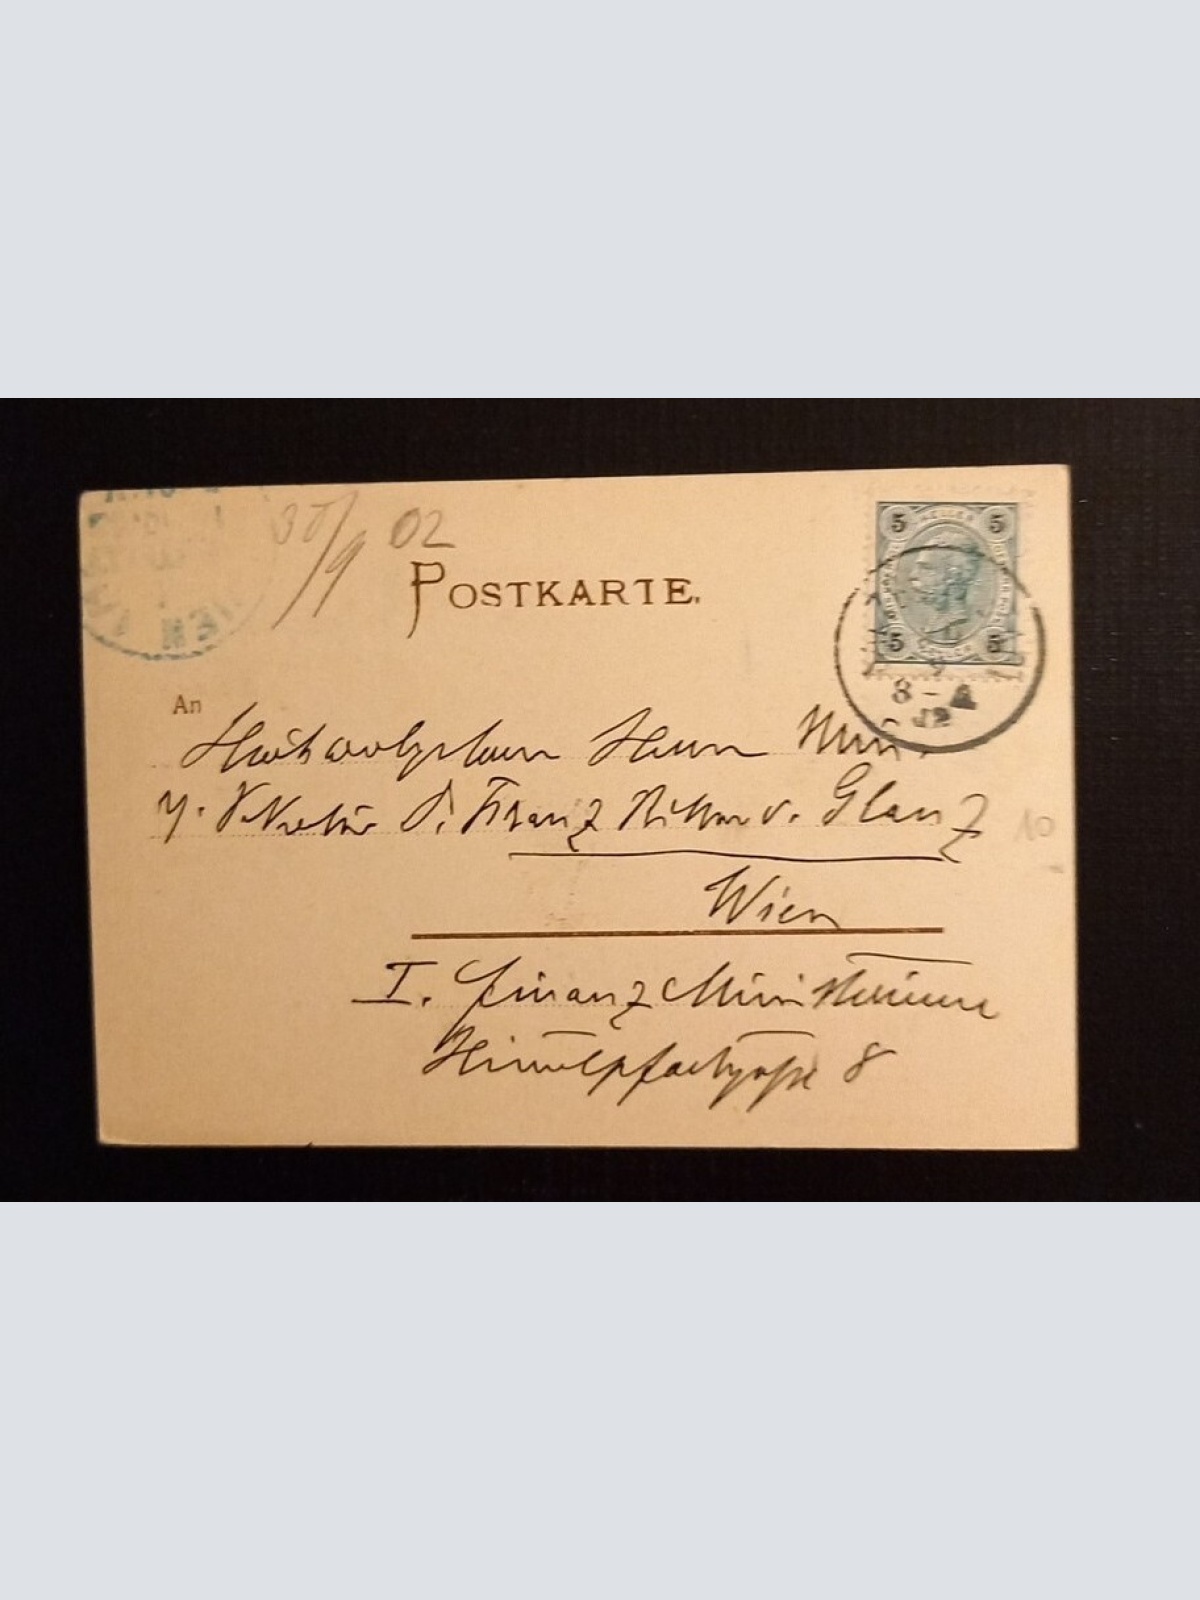 30/9 02
POSTKARTE.
5 HELLER 5
5 HELLER 5
8-A
An
Hochwohlgeboren Herrn Min.
Franz Ritter v. Glanz
10
Wien
I. Finanz Ministerium
Himmelpfortgasse 8
WIEN